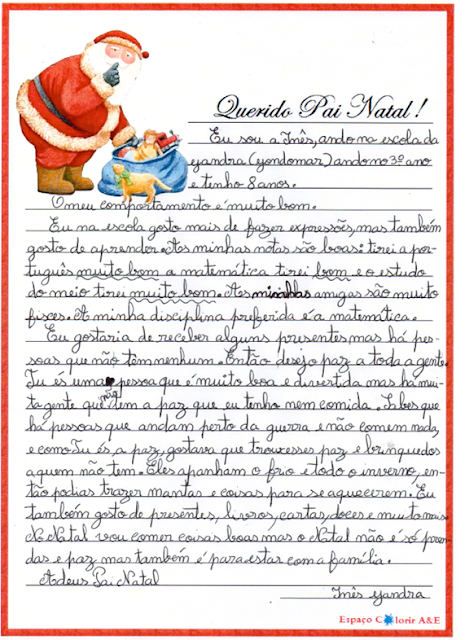 Querido Pai Natal!
Eu sou a Inês, ando na escola da
yandra (yondomar) ando no 3º ano
e tenho 8 anos.
O meu comportamento é muito bom.
Eu na escola gosto mais de fazer expressões, mas também
gosto de aprender. As minhas notas são boas: tirei a por-
tuguês muito bom a matemática tirei bom e o estudo
do meio tirei muito bom. As minhas amigas são muito
fisces. A minha disciplina preferida é a matemática.
Eu gostaria de receber alguns presentes mas há pes-
soas que não têm nenhum. Então desejo paz a toda a gente.
Tu és uma pessoa que é muito boa e divertida mas há mui-
ta gente que não tem a paz que eu tenho nem comida. Sabes que
há pessoas que andam perto da guerra e não comem nada,
e como Tu és, a paz, gostava que trouxesses paz e brinquedos
a quem não tem. Eles apanham o frio e todo o inverno, en-
tão podias trazer mantas e coisas para se aquecerem. Eu
também gosto de presentes, livros, cartas, doces e muito mais.
No Natal vou comer coisas boas mas o Natal não é só pren-
das e paz mas também é para estar com a família.
Adeus Pai Natal
Inês yandra
Espaço Colorir A&E